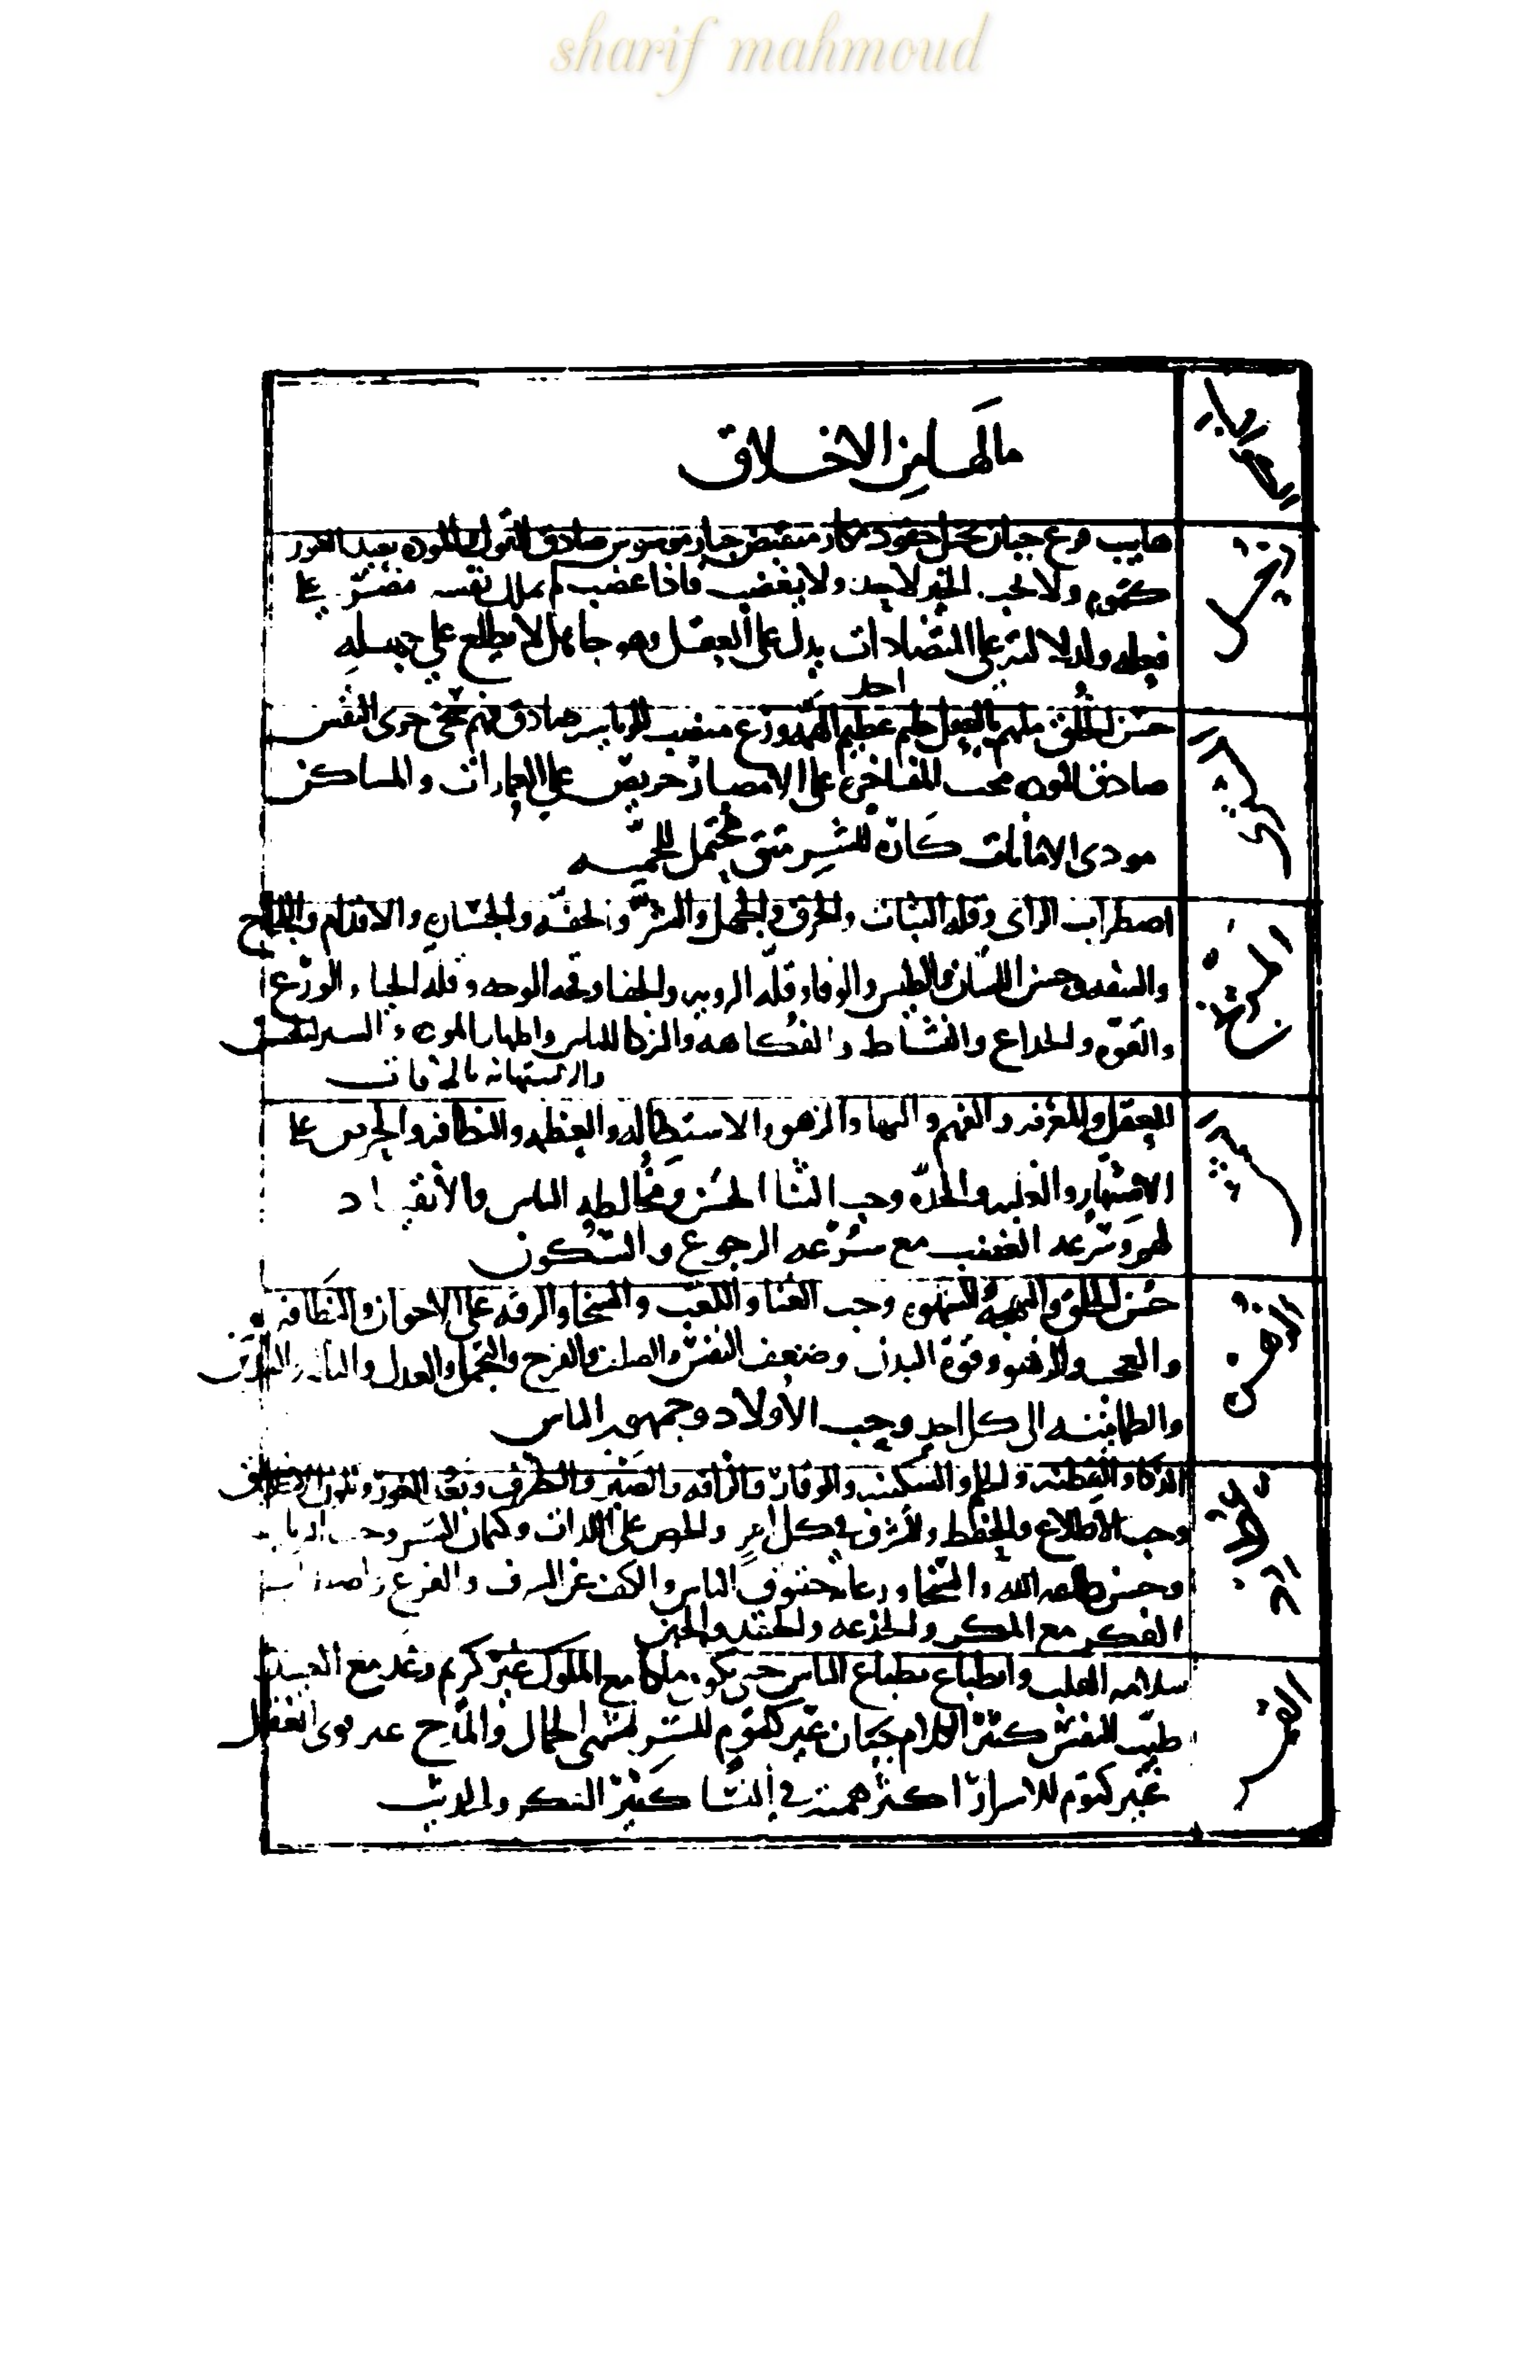 sharif mahmoud
الكواكب
ما لها من الاخلاق
زحل
هايب فزع جبان بخيل حقود مكار منقبض جبار موسوس صادق القول المودة بعيد الغور
كتوم ولا يحب الخير لاحد ولا يغضب فاذا غضب لم يملك نفسه مضر على
فعله ولدلالته على المتضادات يدل على العقل وهو جاهل لا يطلع على جهله
احد
المشتري
حسن الخلق ملهم بالعقل حليم عظيم الهمة ورع منصف صادق فهم سخي حري النفس
صادق المودة محب للمفاخر على الامصار حريص على العمارات والمساكن
مودي الامانات كاتم للسر متق محتمل للحمية
المريخ
اضطراب الراي وقلة الثبات والخرق والجهل والشر والخفة والجسارة والاقدام واللجاج
والسفه وحسن اللسان والطيش والوفا وقلة الروية والجفا وقحة الوجه وقلة الحيا والورع
والقوة والخداع والنشاط والفكاهة للناس واظهار المودة
والاستهانة بالمخافات
الشمس
للعقل والمعرفة والفهم والبها والزهو والاستطالة والعظمة والنظافة والحرص على
الاشتهار والغلبة والحدة وحب الثنا الحسن ومخالطة الناس والانقياد
لهم وسرعة الغضب مع سرعة الرجوع والسكون
الزهرة
حسن الخلق والبهجة والشهوة وحب الغنا واللعب والسخا والرقة على الاخوان والنظافة
والعجب والزهو وقوة البدن وضعف النفس والصلف والفرح والتجمل والعدل
والطمانينة الى كل احد وحب الاولاد وجمهور الناس
عطارد
الذكا والفطنة والحلم والسكينة والوقار والرافة والصبر والظرف وبعد الغور وتلون
وحب الاطلاع والحفظ والشرف في كل امر والحرص على اللذات وكتمان السر وحب
وحسن طاعة الله والسخا ورعاية حقوق الناس والكف عن السرف والفزع
الفكر مع المكر والخدعة والحقد والجبن
القمر
سلامة القلب وانطباع بطباع الناس حتى يكون ملكا مع الملوك غير كريم وعبد مع العبيد
طيب النفس كثير الكلام جبان غير كتوم للسر يشتهي الجمال والمدح
غير كتوم للاسرار اكثر همته في النسا كثير الفكر والحديث